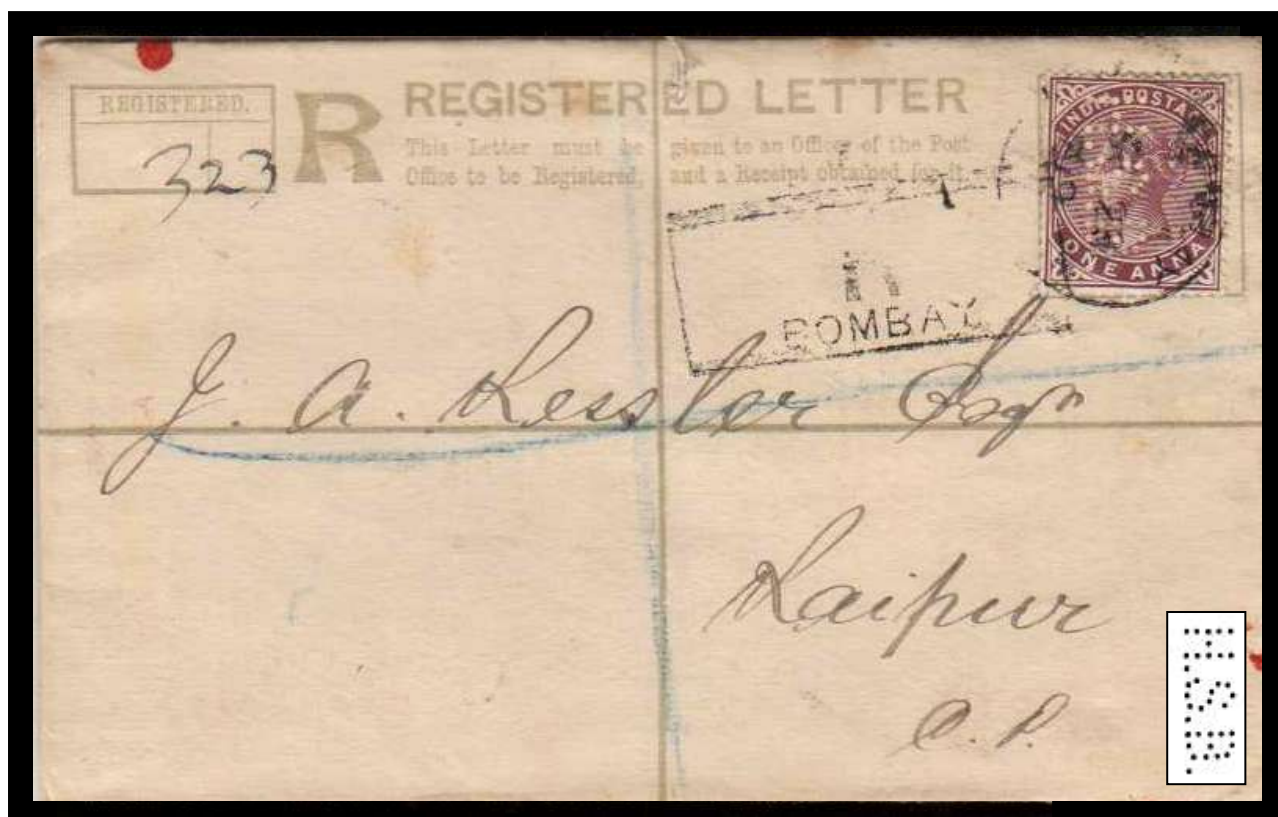 REGISTERED.
323
R
REGISTERED LETTER
This Letter must be given to an Officer of the Post
Office to be Registered, and a Receipt obtained for it.
INDIA POSTAGE
ONE ANNA
R
BOMBAY
J. A. Kessler Esqr
Raipur
C. P.